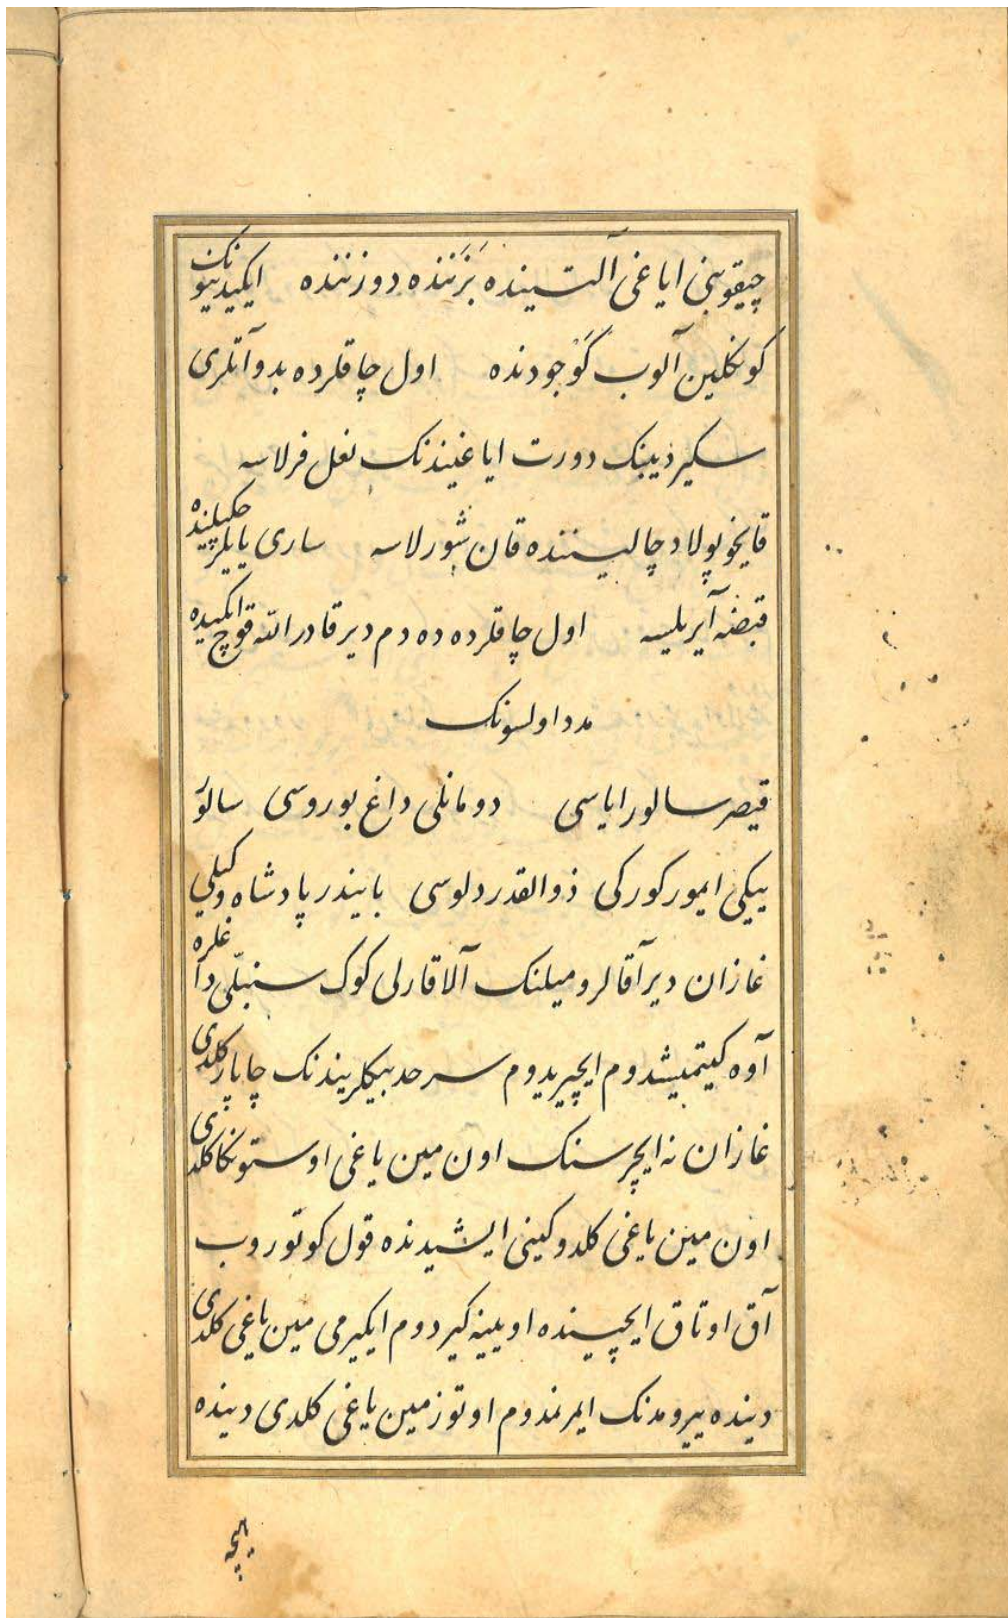 چیقوبنی ایاغی آلتسینده بَزَننده دوزننده ایکیدنیونک
کونکلین آلوب گوجودنده اول چاقلرده بدو آتلری
سکیردیینک دورت ایاغیندنک نعل فرلاسه
قایخو پولاد چالیننده قان شورلاسه ساری یایلر چکیلینده
قبضه آیریلیسه اول چاقلرده ده دم دیر قادر الله قوچ ایکیده
مدد اولسونک
قیصر سالور ایاسی دومانلی داغ بوروسی سالور
بیکی ایمور کورکی ذوالقدر دلوسی بایندر پادشاه وکیلی
غازان دیر آقالروم یلنک آلا قارلی کوک سنبلّی داغلره
آوه کیتمیشدوم ایچیریدوم سرحد بیکلریندنک چاپار کلدی
غازان نه ایچرسنک اون مین یاغی اوستونکا کلدی
اون مین یاغی کلدوکینی ایشیدنده قول کوتوروب
آق اوتاق ایچینده اویینه کیردوم ایکیرمی مین یاغی کلدی
دینده ییرومدنک ایمرنمدوم اوتوز مین یاغی کلدی دینده